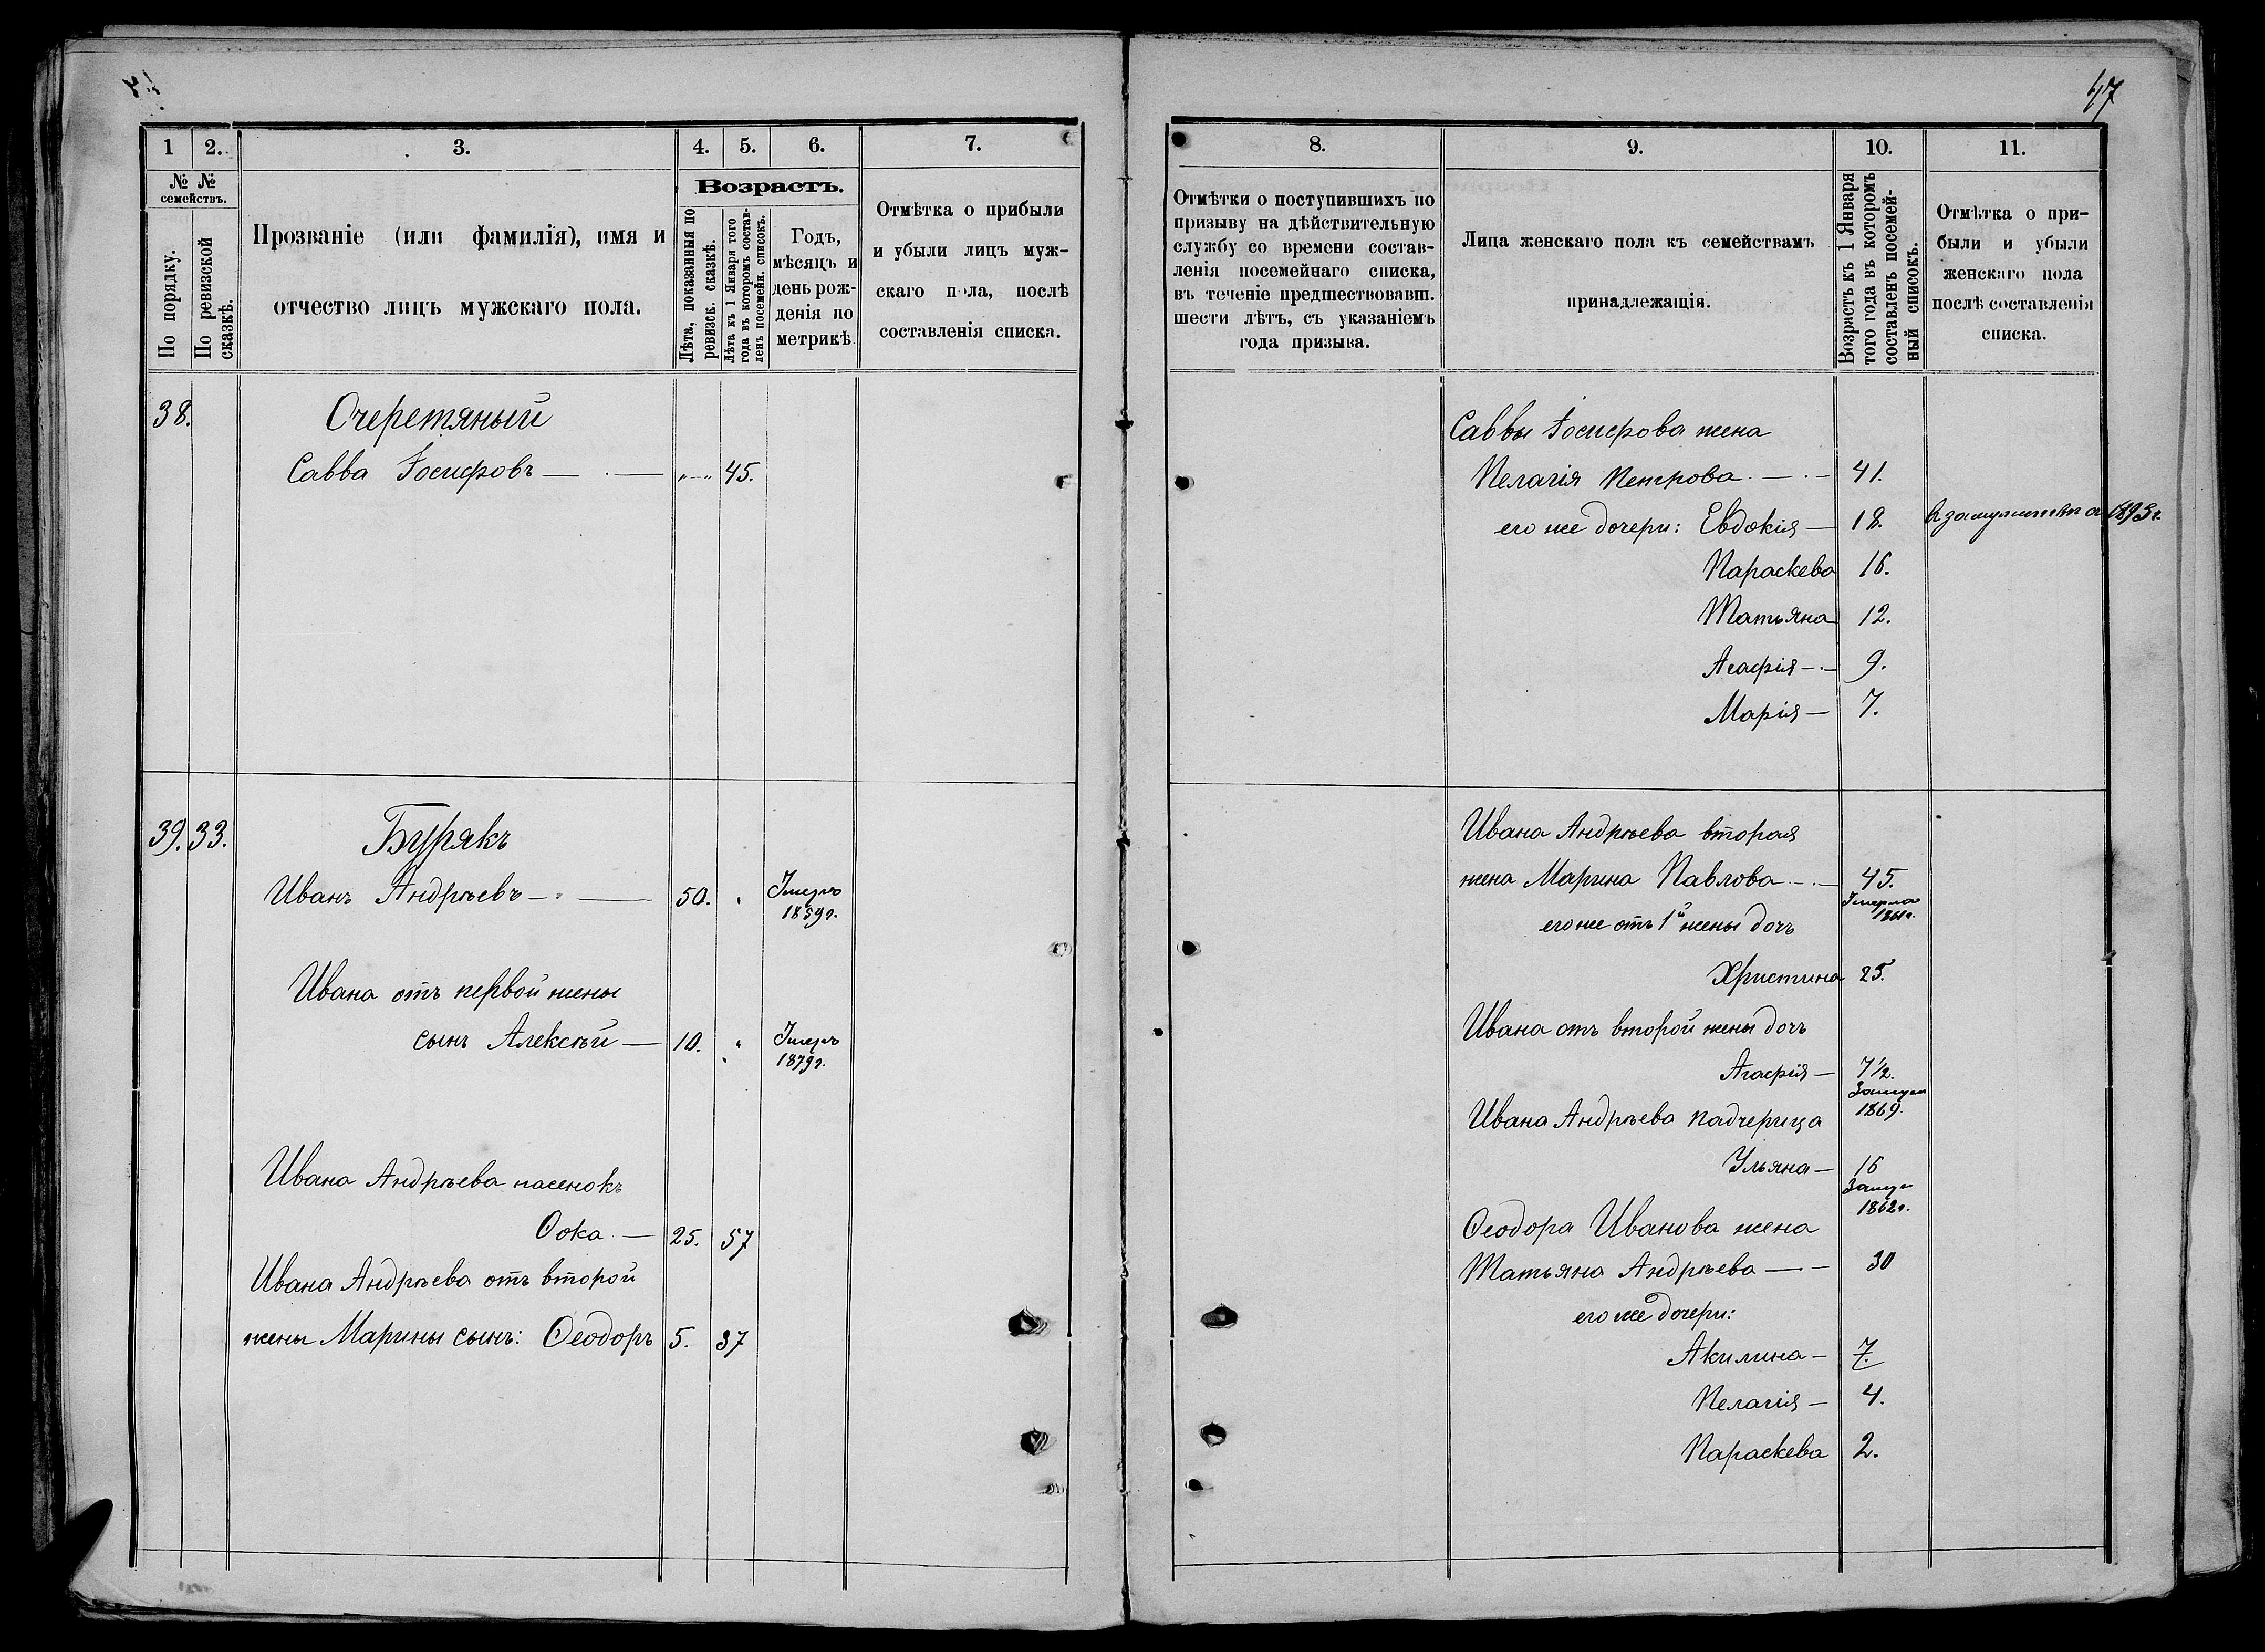 47
1 2. 3. 4. 5. 6. 7.
№ № семействъ.
По порядку.
По ревизской сказкѣ.
Прозваніе (или фамилія), имя и
отчество лицъ мужскаго пола.
Возрастъ.
Лѣта, показанныя по
ревизск. сказкѣ.
Лѣта къ 1 Января того
года въ которомъ состав-
ленъ посемейн. списокъ.
Годъ,
мѣсяцъ и
день рож-
денія по
метрикѣ
Отмѣтка о прибыли
и убыли лицъ муж-
скаго пола, послѣ
составленія списка.
38.
Очеретяный
Савва Іосифовъ — „—„ 45.
39. 33.
Бурякъ
Иванъ Андрѣевъ — 50. „ Умеръ
1859г.
Ивана отъ первой жены
сынъ Алексѣй — 10. „ Умеръ
1879г.
Ивана Андрѣева пасенокъ
Ѳока — 25. 57
Ивана Андрѣева отъ второй
жены Марины сынъ: Ѳеодоръ 5. 37
8. 9. 10. 11.
Отмѣтки о поступившихъ по
призыву на дѣйствительную
службу со времени состав-
ленія посемейнаго списка,
въ теченіе предшествовавш.
шести лѣтъ, съ указаніемъ
года призыва.
Лица женскаго пола къ семействамъ
принадлежащія.
Возрастъ къ 1 Января
того года въ которомъ
составленъ посемей-
ный списокъ.
Отмѣтка о при-
были и убыли
женскаго пола
послѣ составленія
списка.
Саввы Іосифова жена
Пелагія Петрова — 41.
его же дочери: Евдокія — 18. 1893г.
Параскева 16.
Татьяна 12.
Агафія — 9.
Марія — 7.
Ивана Андрѣева вторая
жена Марина Павлова — 45.
Умерла
1861г.
его же отъ 1й жены дочь
Христина 25.
Ивана отъ второй жены дочь
Агафія — 7½.
Замуж
1869.
Ивана Андрѣева падчерица
Ульяна — 16
Замуж
1862г.
Ѳеодора Иванова жена
Татьяна Андрѣева — 30
его же дочери:
Акилина — 7.
Пелагія — 4.
Параскева 2.